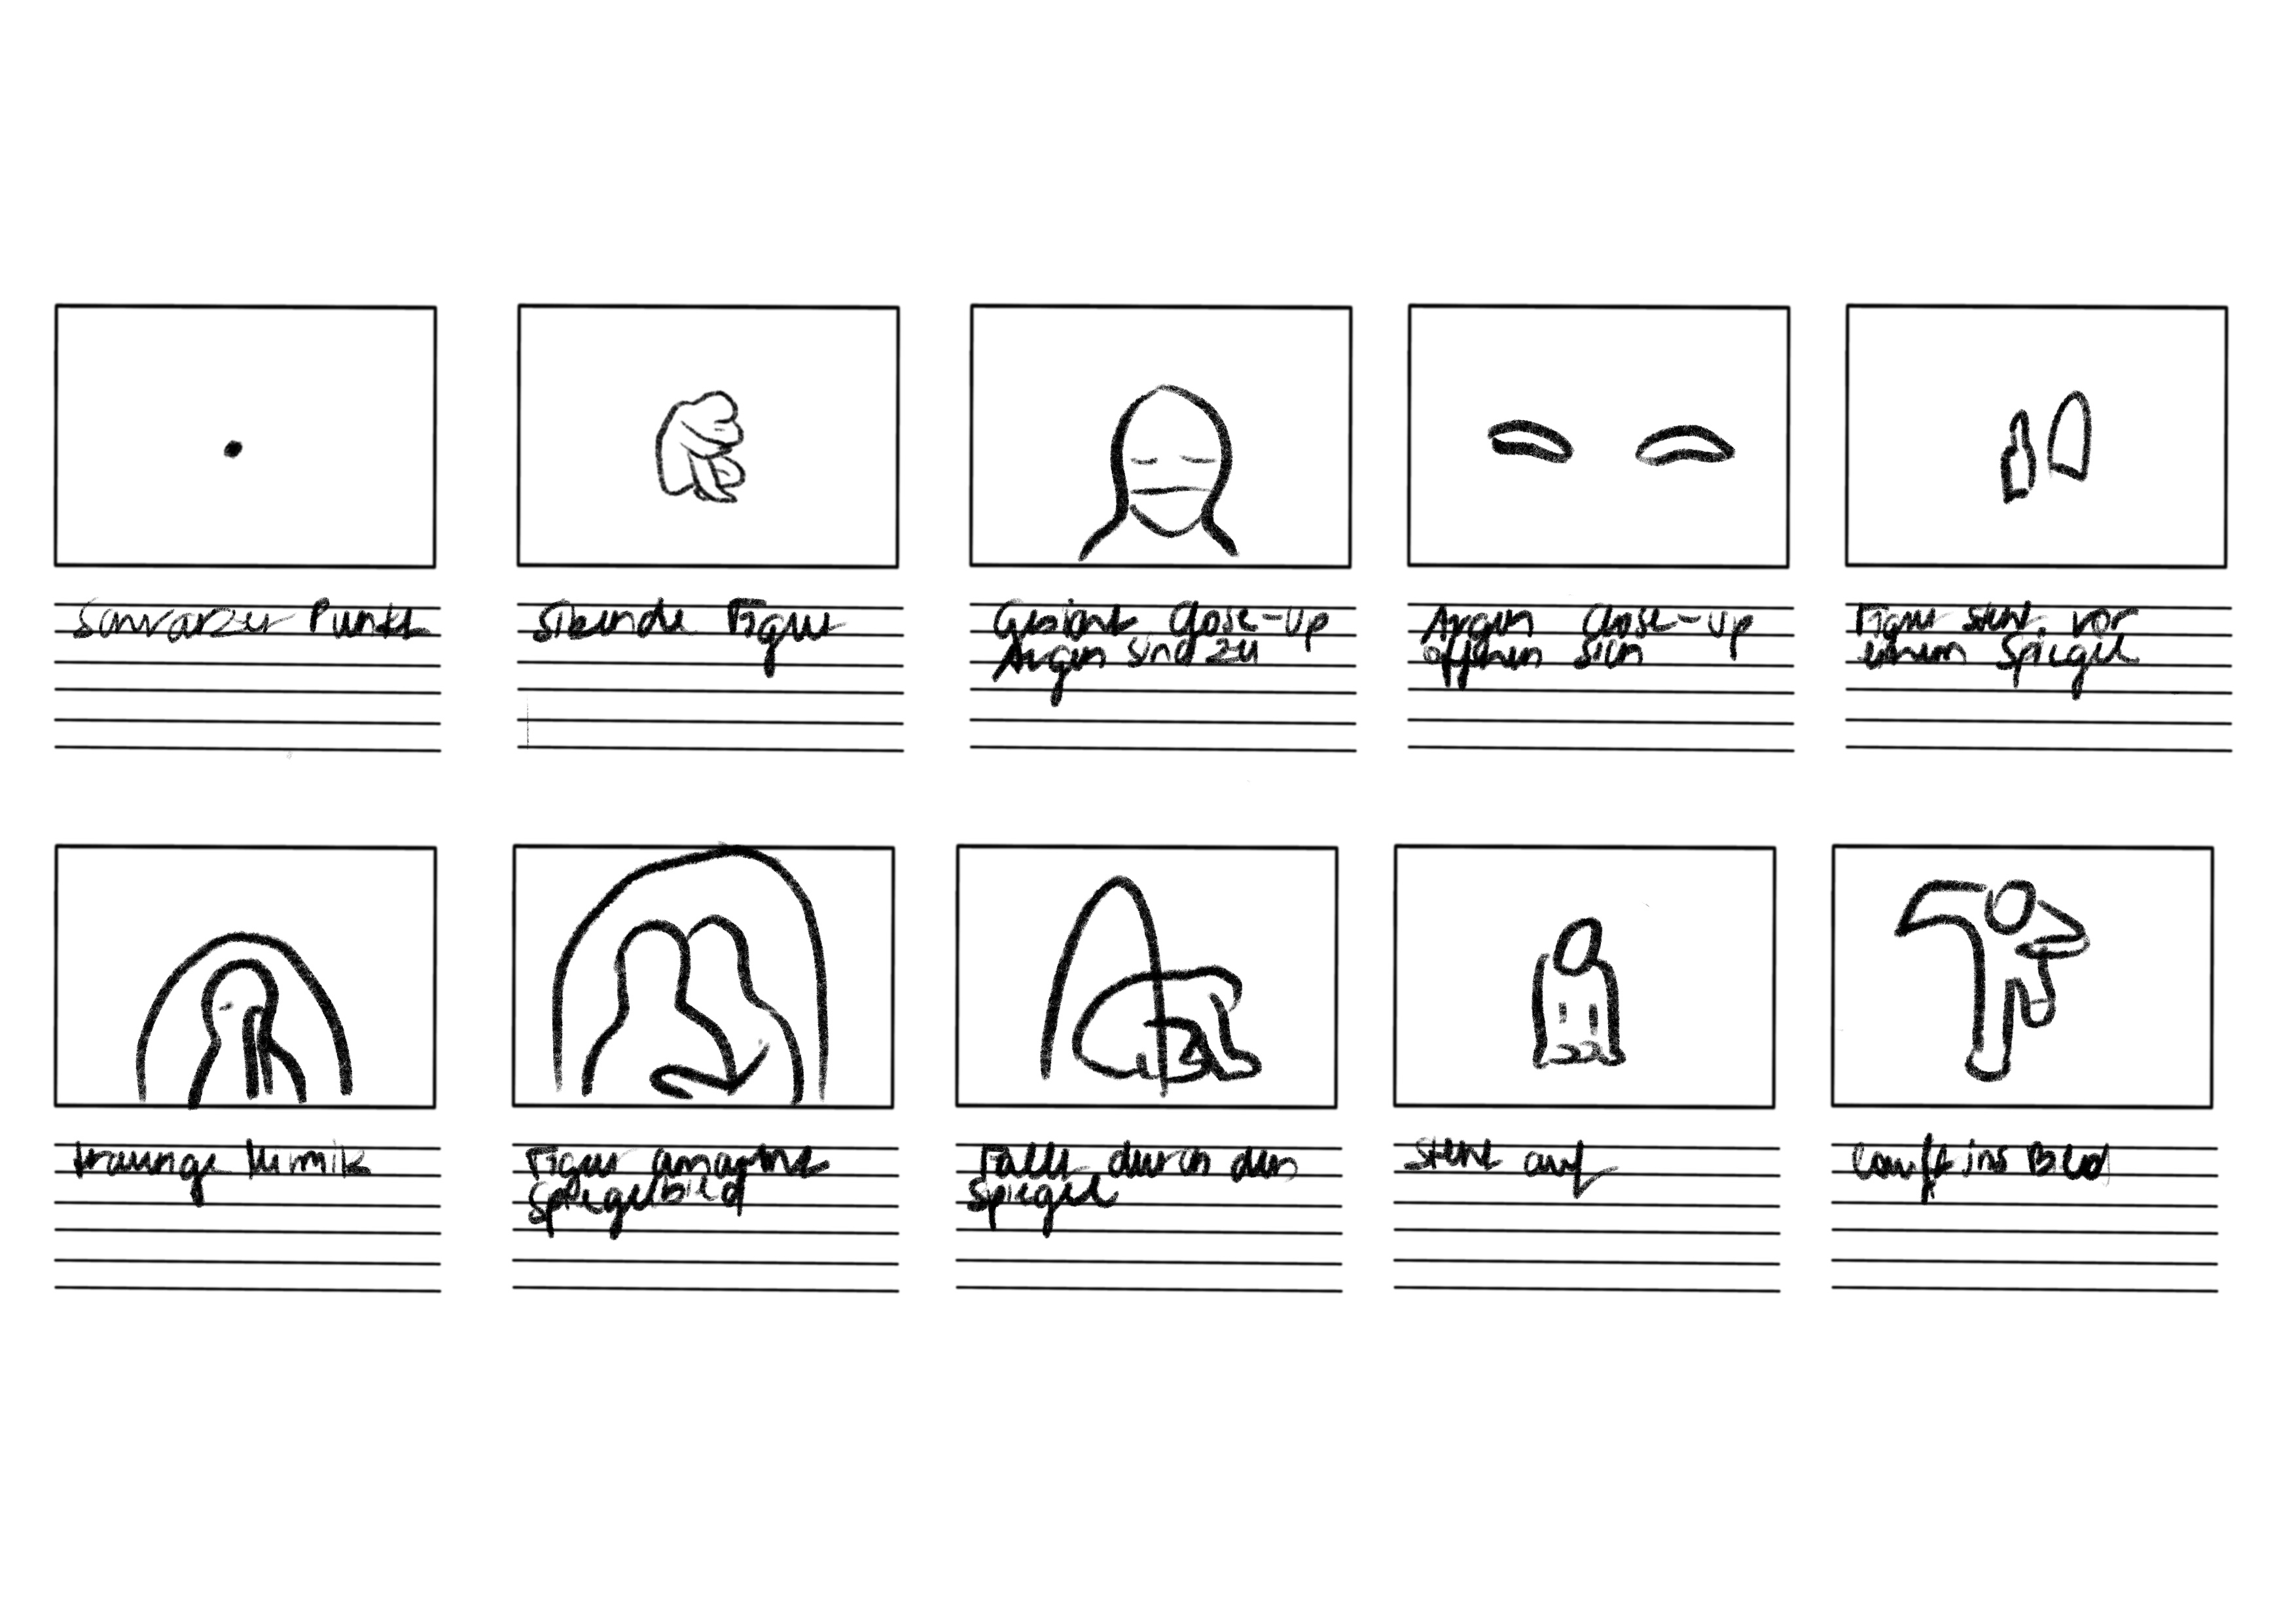 Schwarzer Punkt
Sitzende Figur
Gesicht Close-up
Augen sind zu
Augen Close-up
öffnen sich
Figur steht vor
einem Spiegel
traurige Mimik
Figur umarmt
Spiegelbild
Fällt durch den
Spiegel
steht auf
läuft ins Bild